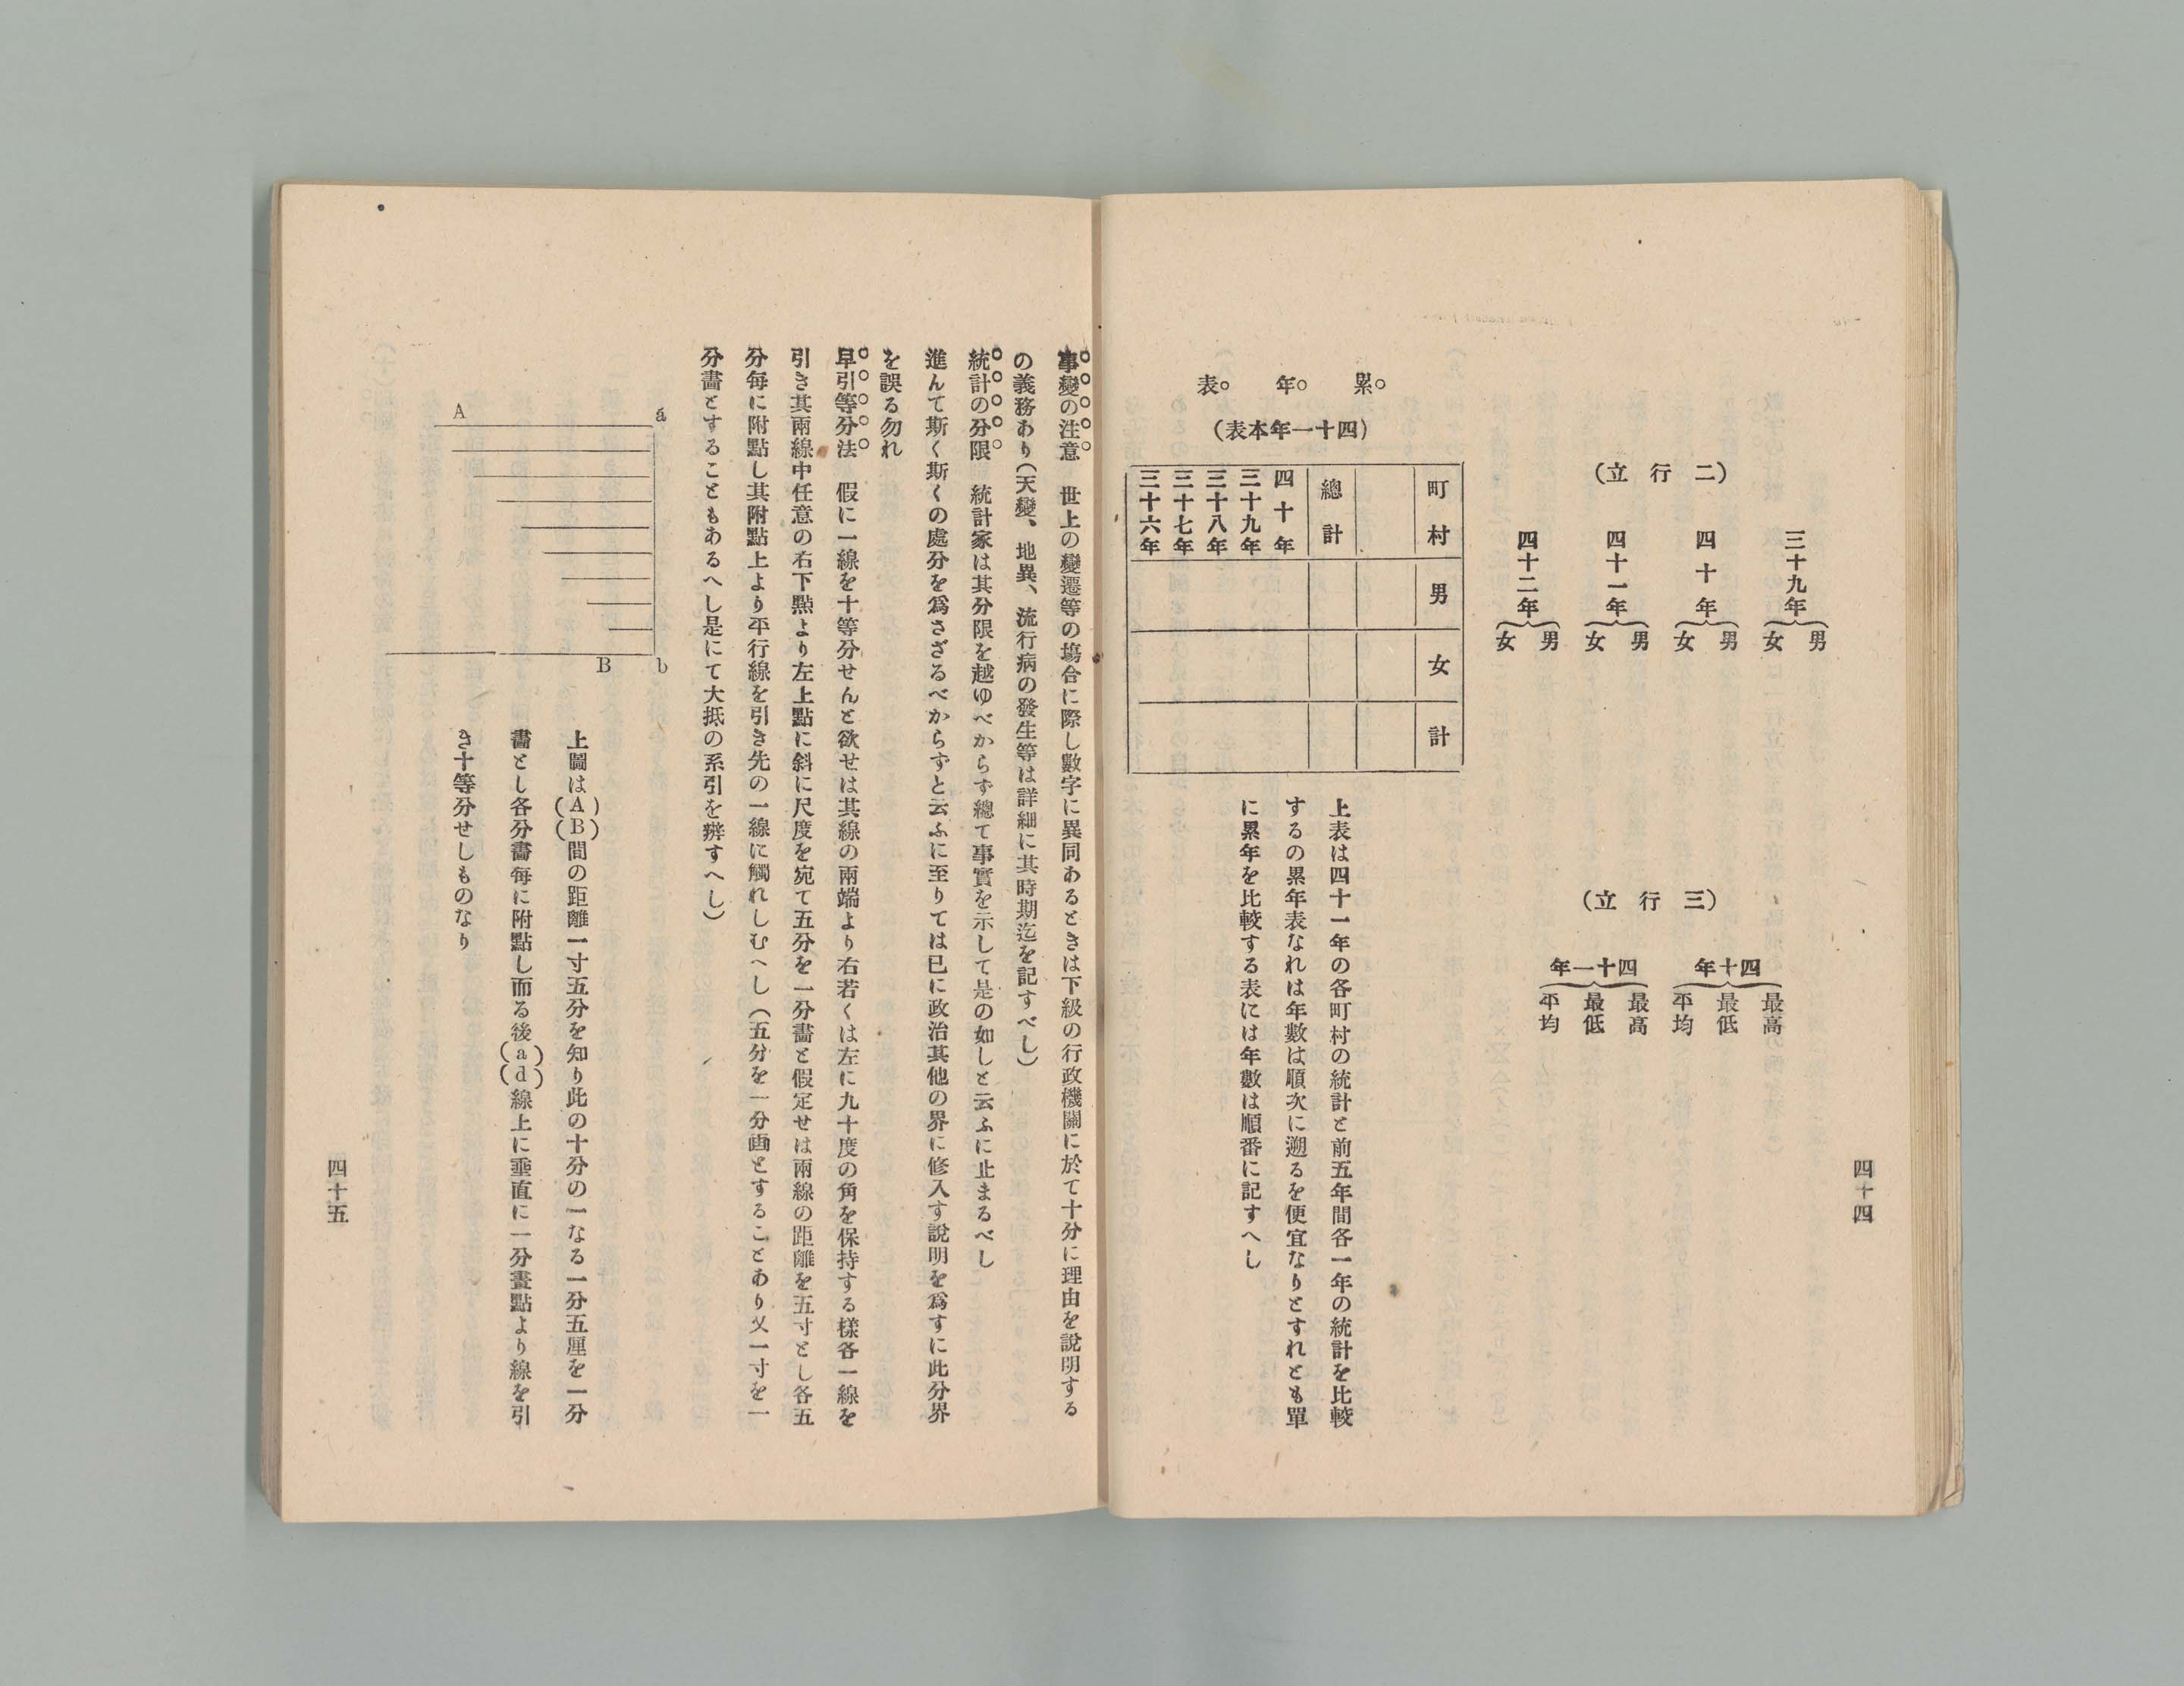 (二行立)
三十九年
男
女
四十年
男
女
四十一年
男
女
四十二年
男
女
(三行立)
四十年
最高
最低
平均
四十一年
最高
最低
平均
累年表
(四十一年本表)
町村
男
女
計
總計
四十年
三十九年
三十八年
三十七年
三十六年
上表は四十一年の各町村の統計と前五年間各一年の統計を比較
するの累年表なれは年數は順次に遡るを便宜なりとすれとも單
に累年を比較する表には年數は順番に記すへし
四十四
事變の注意 世上の變遷等の塲合に際し數字に異同あるときは下級の行政機關に於て十分に理由を說明する
の義務あり(天變、地異、流行病の發生等は詳細に其時期迄を記すべし)
統計の分限 統計家は其分限を越ゆべからず總て事實を示して是の如しと云ふに止まるべし
進んて斯く斯くの處分を爲さざるべからずと云ふに至りては已に政治其他の界に修入す說明を爲すに此分界
を誤る勿れ
早引等分法 假に一線を十等分せんと欲せは其線の兩端より右若くは左に九十度の角を保持する樣各一線を
引き其兩線中任意の右下點より左上點に斜に尺度を宛て五分を一分畵と假定せは兩線の距離を五寸とし各五
分每に附點し其附點上より平行線を引き先の一線に觸れしむへし(五分を一分画とすることあり又一寸を一
分畵とすることもあるへし是にて大抵の系引を辨すへし)
A
a
B
b
上圖は(A)(B)間の距離一寸五分を知り此の十分の一なる一分五厘を一分
畵とし各分畵每に附點し而る後(a)(d)線上に垂直に一分畫點より線を引
き十等分せしものなり
四十五